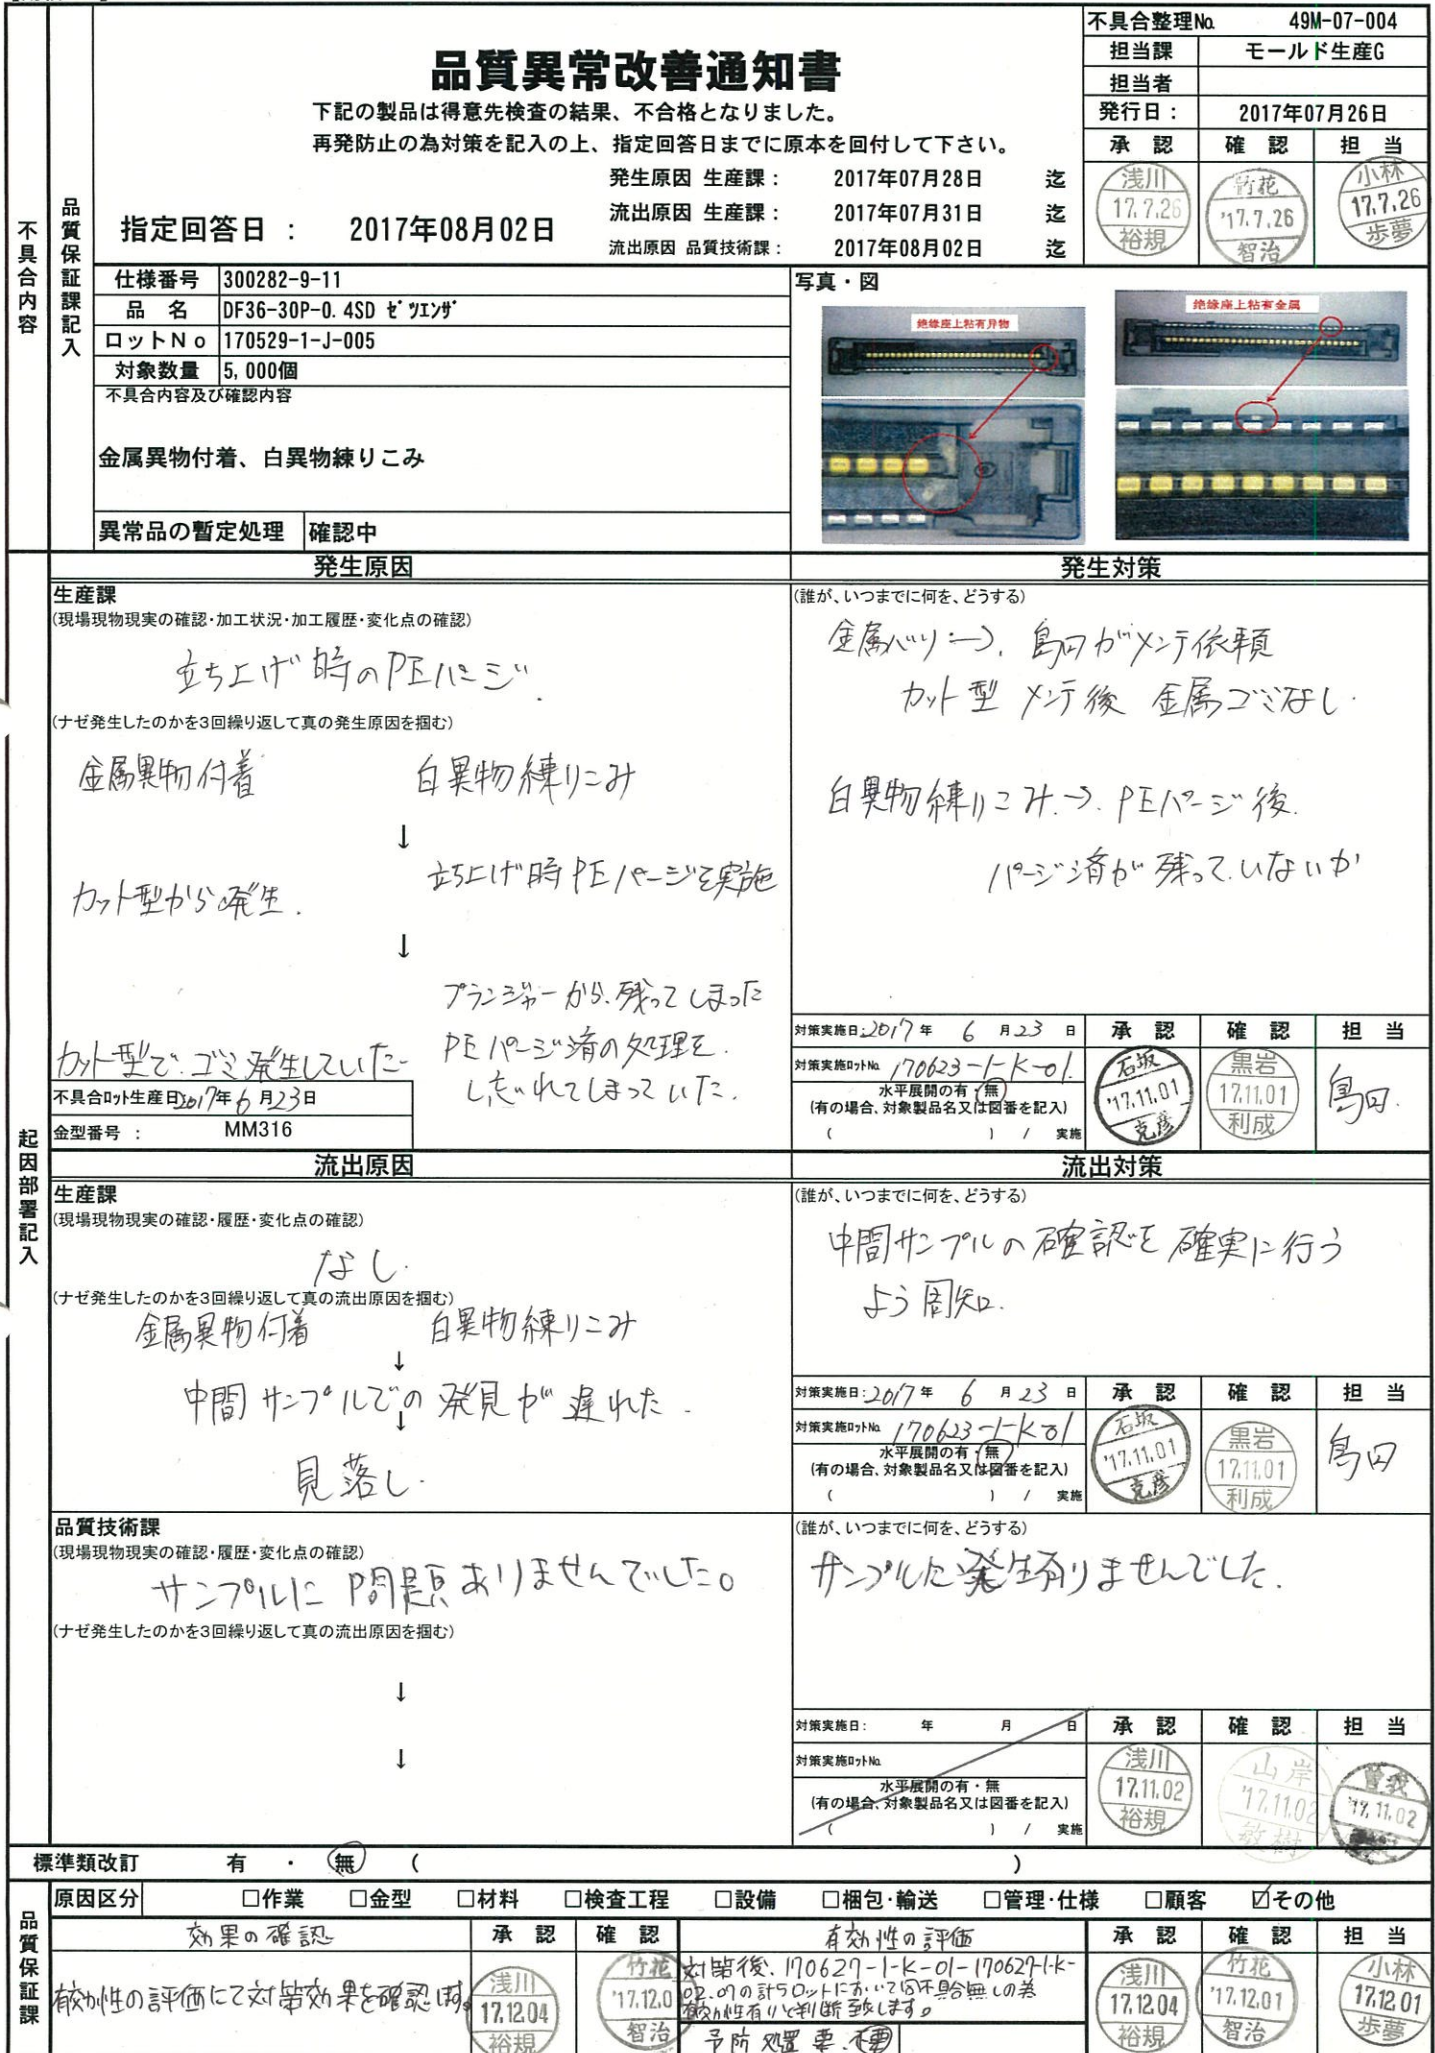 不具合整理No. 49M-07-004
担当課 モールド生産G
担当者
発行日： 2017年07月26日
承認 確認 担当
浅川 17.7.26 裕規
竹花 '17.7.26 智治
小林 17.7.26 歩夢
品質異常改善通知書
下記の製品は得意先検査の結果、不合格となりました。
再発防止の為対策を記入の上、指定回答日までに原本を回付して下さい。
発生原因 生産課： 2017年07月28日 迄
流出原因 生産課： 2017年07月31日 迄
流出原因 品質技術課： 2017年08月02日 迄
指定回答日 ： 2017年08月02日
不具合内容
品質保証課記入
仕様番号 300282-9-11
品 名 DF36-30P-0.4SD ｾﾞﾂｴﾝｻﾞ
ロットＮｏ 170529-1-J-005
対象数量 5,000個
不具合内容及び確認内容
金属異物付着、白異物練りこみ
異常品の暫定処理 確認中
写真・図
绝缘座上粘有异物
绝缘座上粘有金属
起因部署記入
発生原因
生産課
(現場現物現実の確認・加工状況・加工履歴・変化点の確認)
立ち上げ時のPEパージ.
(ナゼ発生したのかを3回繰り返して真の発生原因を掴む)
金属異物付着 白異物練りこみ
↓
カット型から発生. 立ち上げ時PEパージを実施
↓
カット型で.ゴミ発生していた
プランジャーから.残ってしまった
PEパージ済の処理を.
し忘れてしまっていた.
不具合ﾛｯﾄ生産日 2017年 6 月 23 日
金型番号 ： MM316
発生対策
(誰が、いつまでに何を、どうする)
金属バリ →. 島田がメンテ依頼
カット型 メンテ後 金属ゴミなし.
白異物練りこみ.→. PEパージ後.
パージ済が残って.いないか
対策実施日: 2017 年 6 月 23 日
対策実施ﾛｯﾄNo. 170623-1-K-01.
水平展開の有・無
(有の場合、対象製品名又は図番を記入)
( ) / 実施
承認 確認 担当
石坂 '17.11.01 克彦
黒岩 17.11.01 利成
島田.
流出原因
生産課
(現場現物現実の確認・履歴・変化点の確認)
なし.
(ナゼ発生したのかを3回繰り返して真の流出原因を掴む)
金属異物付着 白異物練りこみ
↓
中間サンプルでの発見が遅れた.
↓
見落し.
流出対策
(誰が、いつまでに何を、どうする)
中間サンプルの確認を確実に行う
よう周知.
対策実施日: 2017 年 6 月 23 日
対策実施ﾛｯﾄNo. 170623-1-K-01
水平展開の有・無
(有の場合、対象製品名又は図番を記入)
( ) / 実施
承認 確認 担当
石坂 '17.11.01 克彦
黒岩 17.11.01 利成
島田
品質技術課
(現場現物現実の確認・履歴・変化点の確認)
サンプルに問題ありませんでした。
(ナゼ発生したのかを3回繰り返して真の流出原因を掴む)
↓
↓
(誰が、いつまでに何を、どうする)
サンプルに発生有りませんでした.
対策実施日: 年 月 日
対策実施ﾛｯﾄNo.
水平展開の有・無
(有の場合、対象製品名又は図番を記入)
( ) / 実施
承認 確認 担当
浅川 17.11.02 裕規
山岸 '17.11.02 敏樹
曽我 '17.11.02
標準類改訂 有 ・ 無 ( )
品質保証課
原因区分 □作業 □金型 □材料 □検査工程 □設備 □梱包・輸送 □管理・仕様 □顧客 ☑その他
効果の確認 承認 確認
有効性の評価にて対策効果を確認
浅川 17.12.04 裕規
竹花 '17.12.0 智治
有効性の評価 承認 確認 担当
対策後、170627-1-K-01-170627-1-K-
02.07の計5ロットにおいて同不具合無しの為
有効性有りと判断致します。
予防処置 要.不要
浅川 17.12.04 裕規
竹花 '17.12.01 智治
小林 17.12.01 歩夢